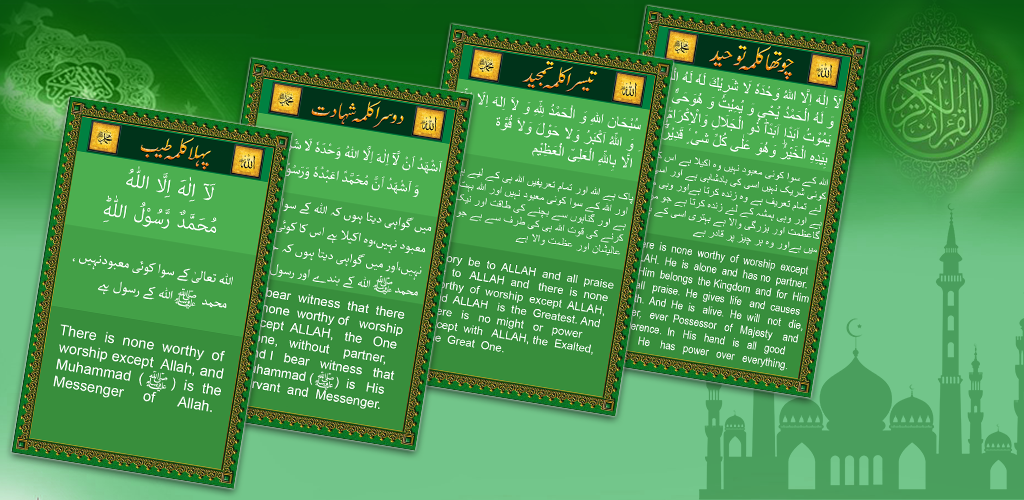 پہلا کلمہ طیب
لَآ اِلٰهَ اِلَّا اللّٰهُ
مُحَمَّدٌ رَّسُوْلُ اللّٰهِؕ
اللہ تعالی کے سوا کوئی معبود نہیں ،
محمد ﷺ اللہ کے رسول ہے
There is none worthy of
worship except Allah, and
Muhammad (ﷺ) is the
Messenger of Allah.
دوسرا کلمہ شہادت
اَشْهَدُ اَنْ لَّآ اِلٰهَ اِلَّا اللهُ وَحْدَهٗ لَا
وَ اَشْهَدُ اَنَّ مُحَمَّدًا عَبْدُهٗ وَرَسُو
میں گواہی دیتا ہوں کہ اللہ کے سوا
معبود نہیں،وہ اکیلا ہے اس کا کوئی
نہیں،اور میں گواہی دیتا ہوں کہ
محمد ﷺ اللہ کے بندے اور رسول
bear witness that there
none worthy of worship
cept ALLAH, the One
one, without partner,
nd I bear witness that
uhammad (ﷺ) is His
rvant and Messenger.
تیسرا کلمہ تمجید
سُبْحَانَ اللهِ وَ الْحَمْدُ لِلّٰهِ وَ لَآ اِلٰهَ اِلَّا
وَ اللهُ اَكْبَرُ وَلَا حَوْلَ وَلَا قُوَّةَ
اِلَّا بِاللهِ الْعَلِىِّ الْعَظِيْمِ
پاک ہے اللہ اور تمام تعریفیں اللہ ہی کے لیے
اور اللہ کے سوا کوئی معبود نہیں اور اللہ
ہے اور گناہوں سے بچنے کی طاقت اور نیک
کرنے کی قوت اللہ ہی کی طرف سے ہے جو
عالیشان اور عظمت والا ہے
ory be to ALLAH and all praise
to ALLAH and there is none
rthy of worship except ALLAH,
d ALLAH is the Greatest. And
ere is no might or power
cept with ALLAH, the Exalted,
e Great One.
چوتھا کلمہ توحید
لَآ اِلٰهَ اِلَّا اللهُ وَحْدَهٗ لَا شَرِيْكَ لَهٗ لَهُ
وَ لَهُ الْحَمْدُ يُحْىٖ وَ يُمِيْتُ وَ هُوَحَىٌّ
يَمُوْتُ اَبَدًا اَبَدًا ذُو الْجَلَالِ وَالْاِكْرَامِ
بِيَدِهِ الْخَيْرُ وَهُوَ عَلٰى كُلِّ شَىْءٍ قَدِيْرٌ
اللہ کے سوا کوئی معبود نہیں وہ اکیلا ہے اس
کوئی شریک نہیں اسی کی بادشاہی ہے اور
لئے تمام تعریف ہے وہ زندہ کرتا ہے اور وہی
ere is none worthy of worship except
LAH. He is alone and has no partner.
Him belongs the Kingdom and for Him
praise. He gives life and causes
th. And He is alive. He will not die,
er, ever Possessor of Majesty and
erence. In His hand is all good
He has power over everything.
القرآن الكريم